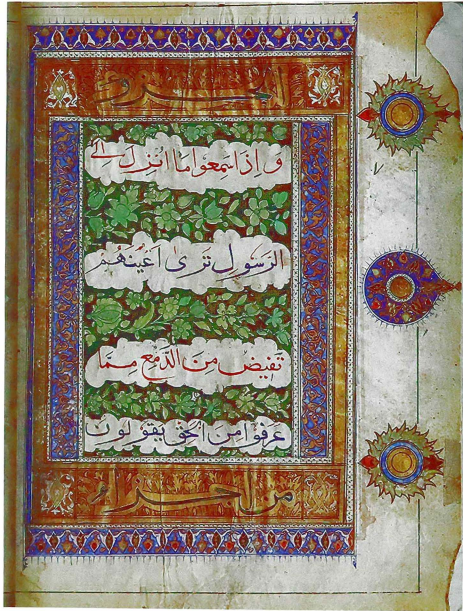 الجزو
وَاِذَا سَمِعُوا مَا اُنْزِلَ اِلَى
الرَسُولِ تَرَى اَعْيُنَهُمْ
تَفِيضُ مِنَ الدَّمْعِ مِمَّا
عَرَفُوا مِنَ الحَقِّ يَقُولُونَ
من اجزاء
٧